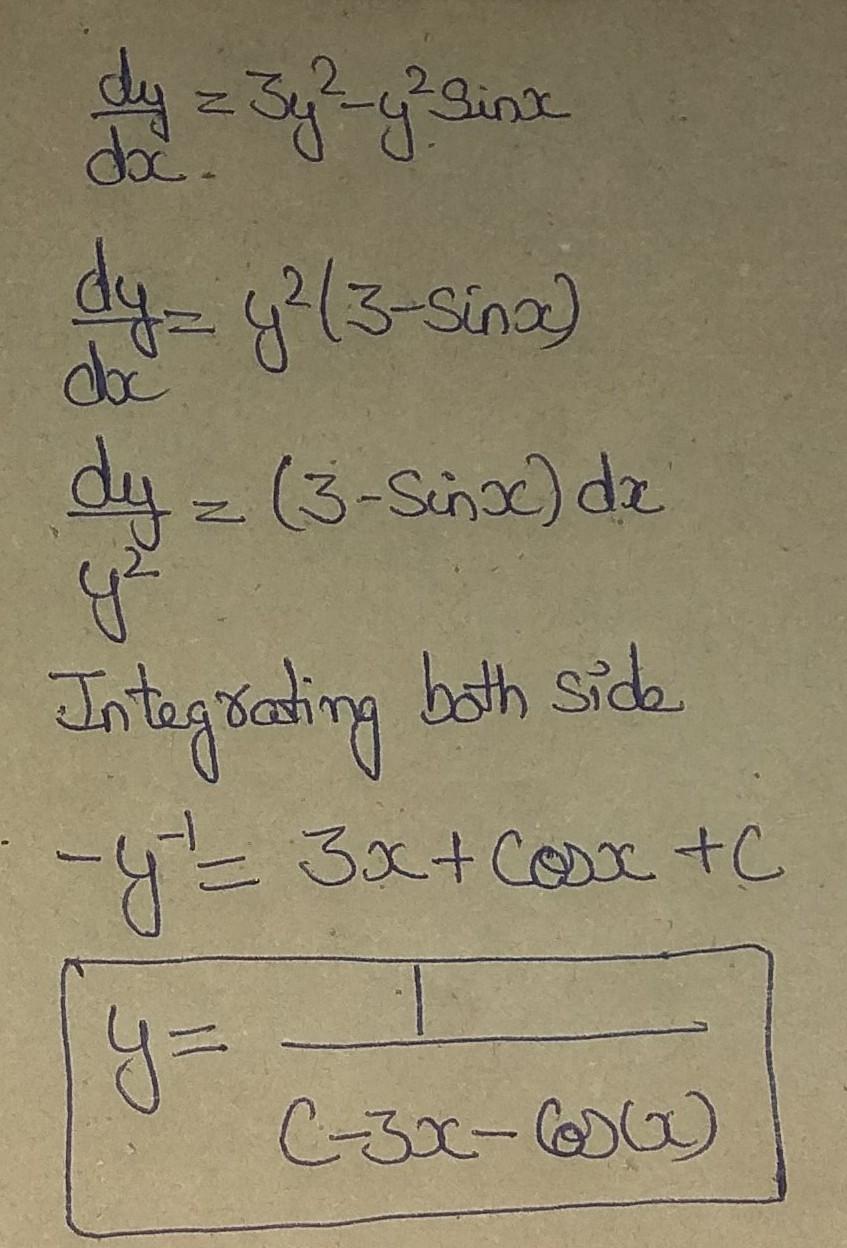 dy/dx = 3y² - y² Sinx
dy/dx = y²(3-Sinx)
dy/y² = (3-Sinx) dx
Integrating both side
-y⁻¹ = 3x + Cosx + C
y = 1/(C-3x-Cos(x))